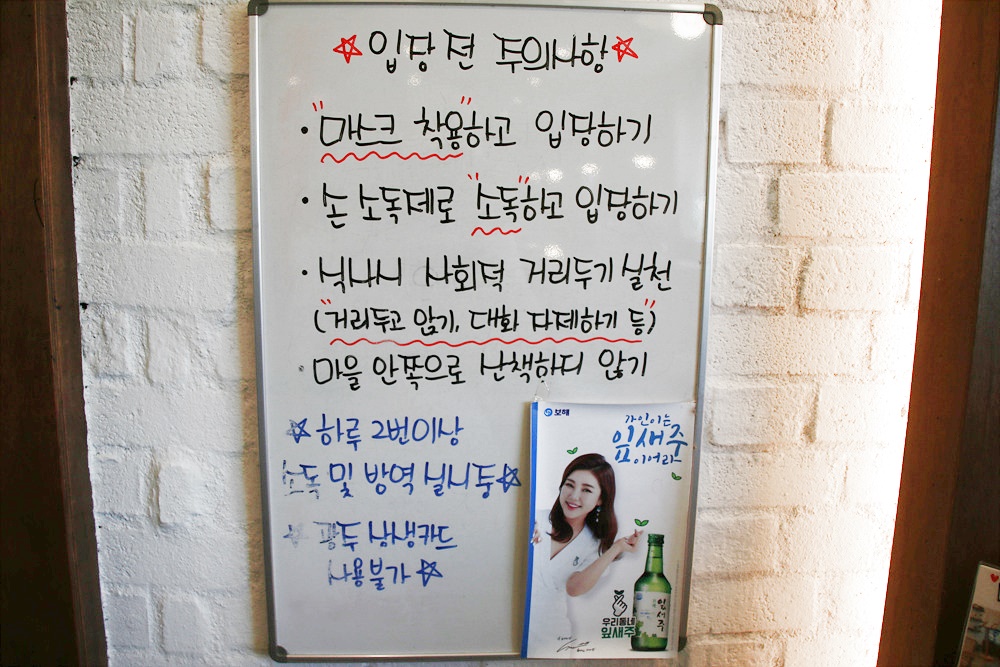 ☆입당 전 주의사항☆
· "마스크 착용"하고 입당하기
· 손 소독제로 "소독"하고 입당하기
· 식사시 사회적 거리두기 실천
("거리두고 앉기, 대화 자제하기 등")
· 마을 안쪽으로 산책하지 않기
☆ 하루 2번이상
소독 및 방역 실시중☆
☆ 광주 상생카드
사용불가 ☆
보해
가인이는
잎새주
이어라
잎새주
우리동네
잎새주